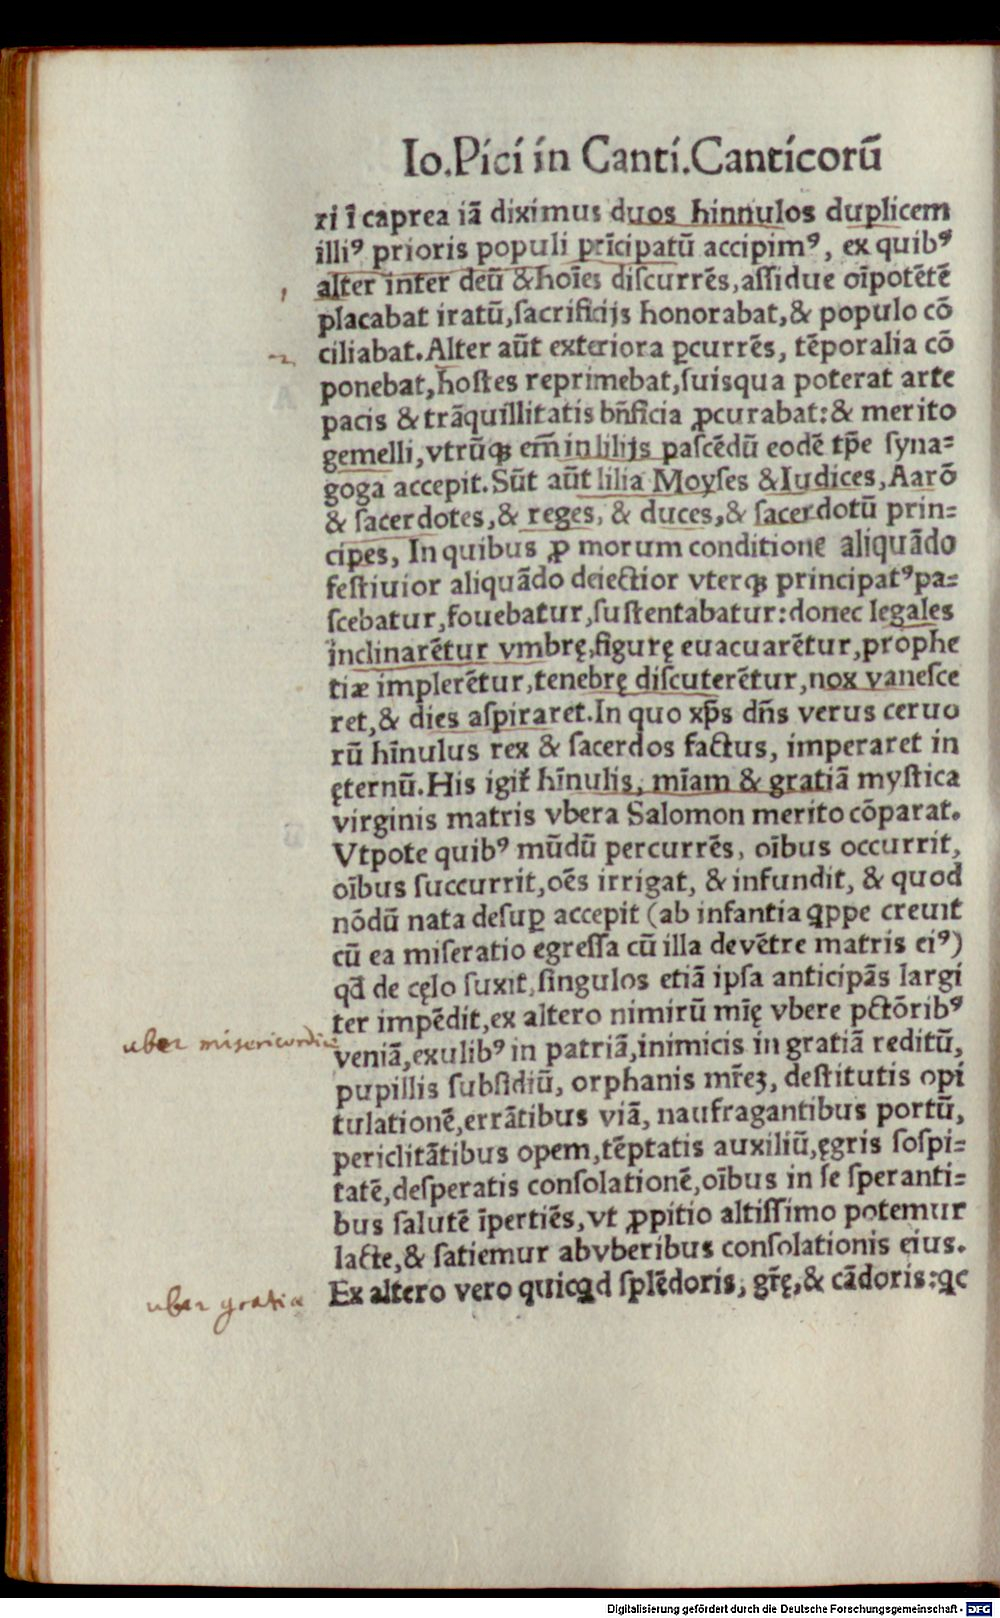 Io.Pici in Canti.Canticorū
ri ī caprea iā diximus duos hinnulos duplicem
illiꝰ prioris populi prīcipatū accipimꝰ, ex quibꝰ
1 alter inter deū & hoīes diſcurrēs,aſſidue oīpotētē
placabat iratū,ſacrificijs honorabat,& populo cō
2 ciliabat.Alter aūt exteriora ꝑcurrēs, tēporalia cō
ponebat,hoſtes reprimebat,ſuisqua poterat arte
pacis & trāquillitatis bn̄ficia ꝓcurabat:& merito
gemelli,vtrūqꝫ em̄ in lilijs paſcēdū eodē tp̄e ſyna=
goga accepit.Sūt aūt lilia Moyſes &Iudices,Aarō
& ſacerdotes,& reges, & duces,& ſacerdotū prin=
cipes, In quibus ꝓ morum conditione aliquādo
feſtiuior aliquādo deiectior vterqꝫ principatꝰpa=
ſcebatur,fouebatur,ſuſtentabatur:donec legales
inclinarētur vmbrę,figurę euacuarētur,prophe
tiæ implerētur,tenebrę diſcuterētur,nox vaneſce
ret,& dies aſpiraret.In quo xp̄s dn̄s verus ceruo
rū hīnulus rex & ſacerdos factus, imperaret in
ęternū.His igit̃ hīnulis, mīam & gratiā myſtica
virginis matris vbera Salomon merito cōparat.
Vtpote quibꝰ mūdū percurrēs, oībus occurrit,
oībus ſuccurrit,oēs irrigat, & infundit, & quod
nōdū nata deſuꝑ accepit (ab infantia qͥppe creuit
cū ea miſeratio egreſſa cū illa devētre matris eiꝰ)
qd̄ de cęlo ſuxit,ſingulos etiā ipſa anticipās largi
ter impēdit,ex altero nimirū mīę vbere pctōribꝰ
uber misericordiæ
veniā,exulibꝰ in patriā,inimicis in gratiā reditū,
pupillis ſubſidiū, orphanis mr̄eꝫ, deſtitutis opi
tulationē,errātibus viā, naufragantibus portū,
periclitātibus opem,tēptatis auxiliū,ęgris ſoſpi=
tatē,deſperatis conſolationē,oībus in ſe ſperanti=
bus ſalutē īpertiēs,vt ꝓpitio altiſſimo potemur
lacte,& ſatiemur abvberibus conſolationis eius.
uber gratiæ
Ex altero vero quicqͥd ſplēdoris, gr̄ę,& cādoris:qͥc
Digitalisierung gefördert durch die Deutsche Forschungsgemeinschaft - DFG